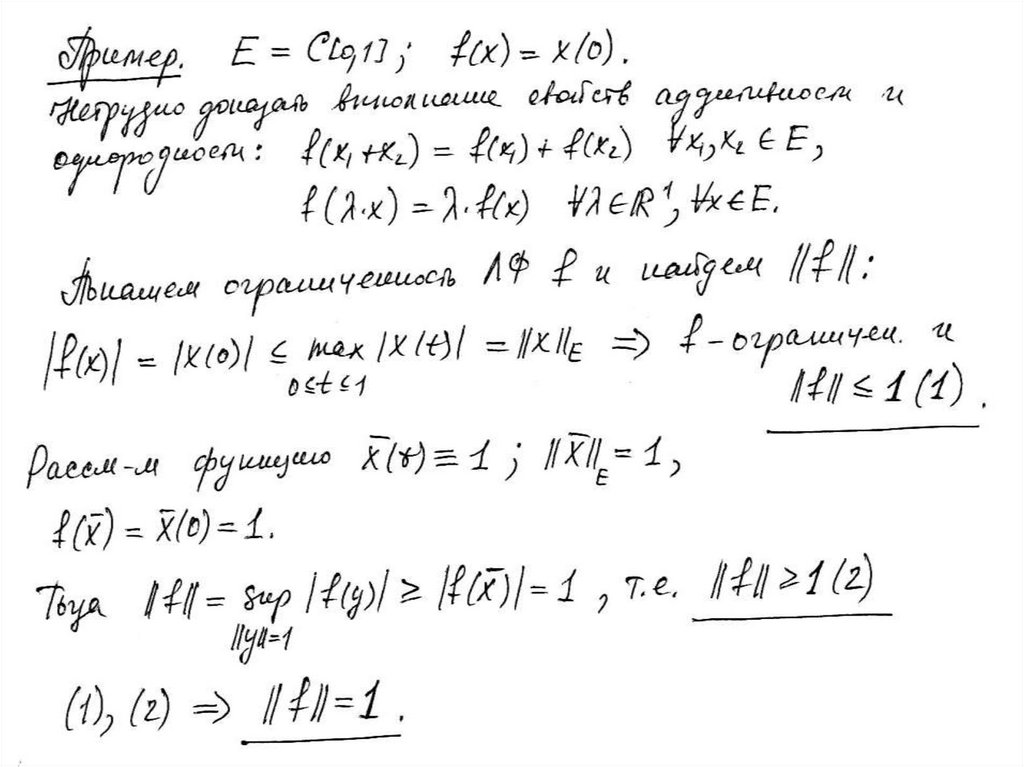 Пример. E = C[0,1]; f(x) = x(0).
Нетрудно доказать выполнение свойств аддитивности и
однородности: f(x₁+x₂) = f(x₁) + f(x₂) ∀x₁,x₂ ∈ E,
f(λ·x) = λ·f(x) ∀λ∈ℝ¹, ∀x∈E.
Докажем ограниченность ЛФ f и найдем ‖f‖:
|f(x)| = |x(0)| ≤ max |x(t)| = ‖x‖_E ⇒ f – ограничен. и
0≤t≤1
‖f‖ ≤ 1 (1).
Рассм-м функцию x̄(t) ≡ 1; ‖x̄‖_E = 1,
f(x̄) = x̄(0) = 1.
Тогда ‖f‖ = sup |f(y)| ≥ |f(x̄)| = 1, т.е. ‖f‖ ≥ 1 (2)
‖y‖=1
(1), (2) ⇒ ‖f‖ = 1.